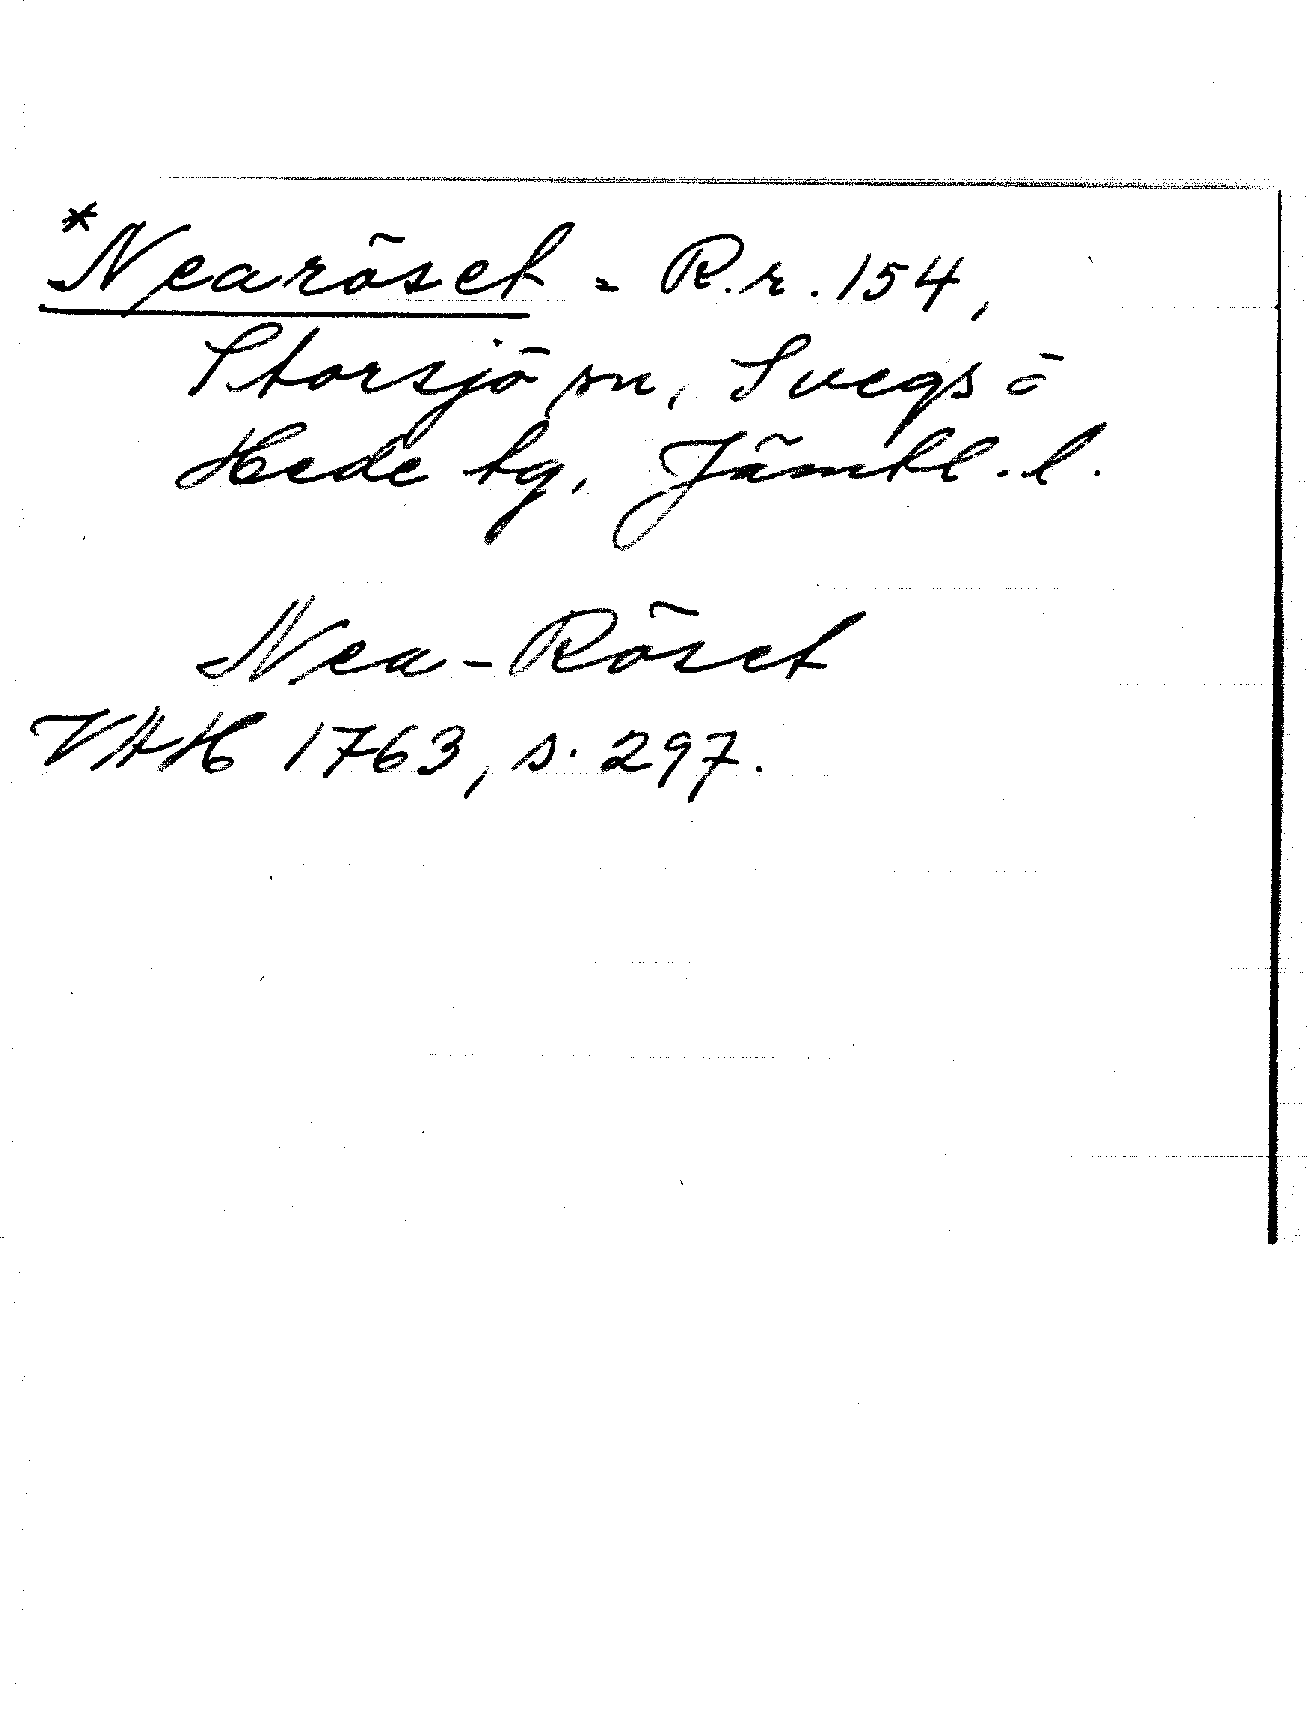 *Nearöset = R.r. 154,
Storsjö sn, Svegs o
Hede tg, Jämtl. l.
Nea-Röset
VHH 1763, s. 297.